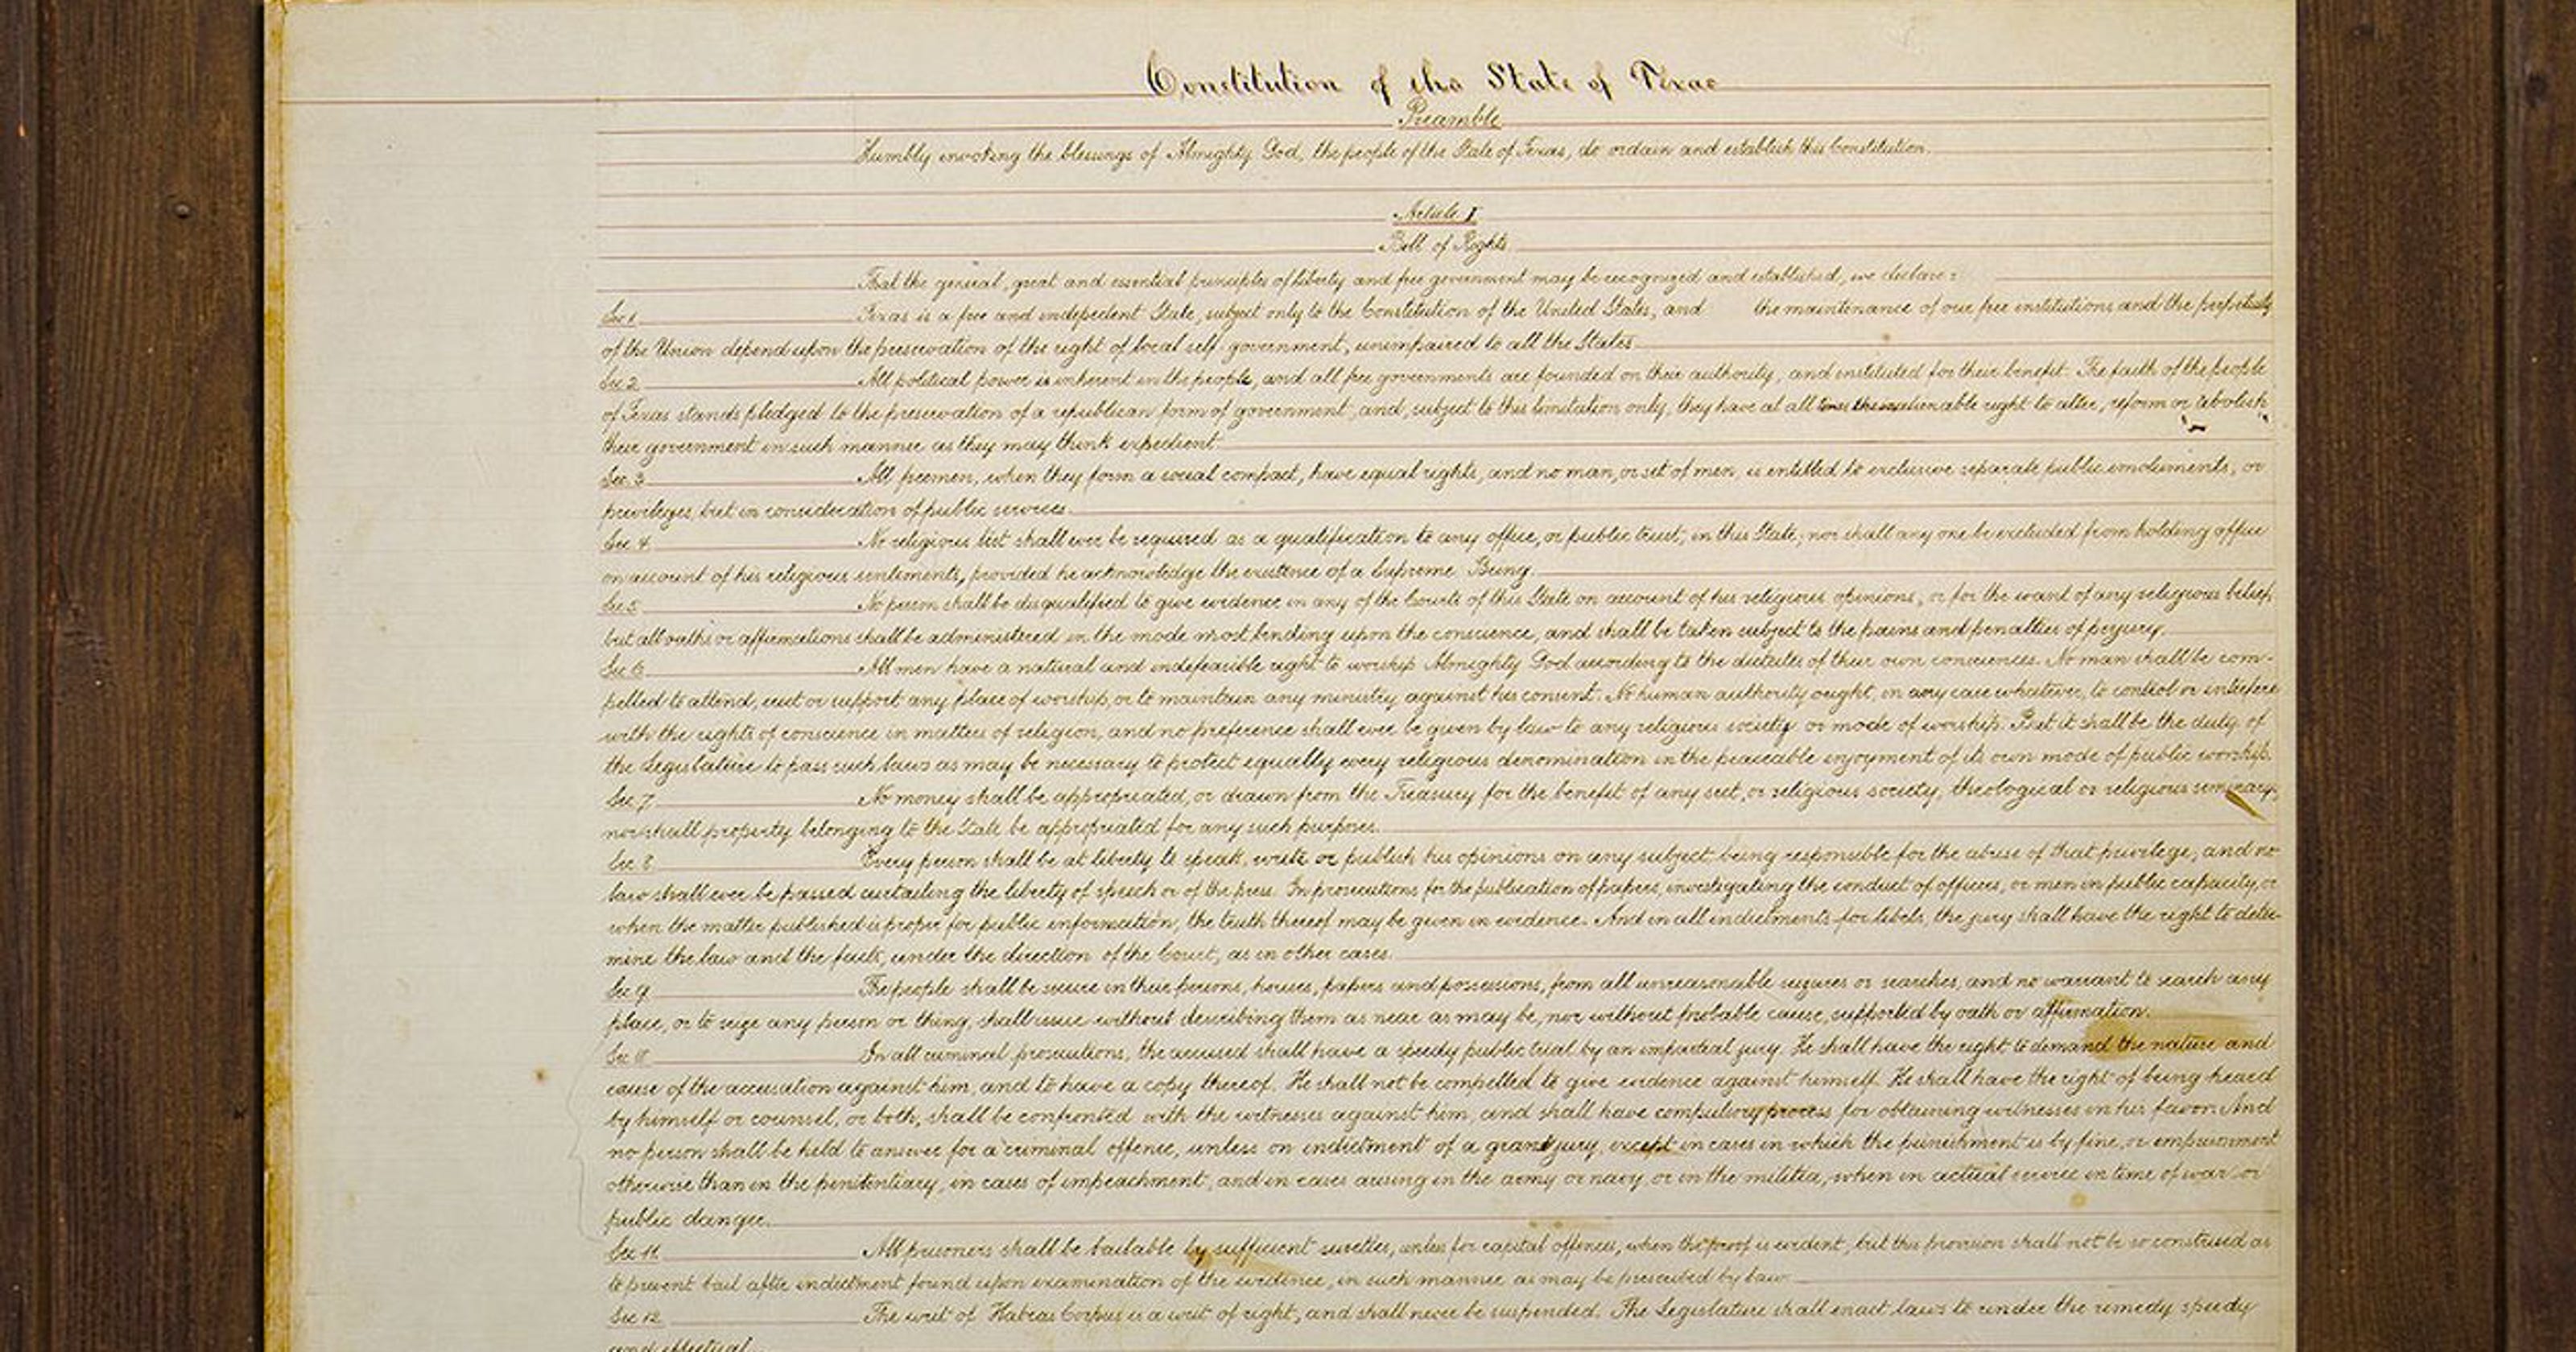 Constitution of the State of Texas
Preamble
Humbly invoking the blessings of Almighty God, the people of the State of Texas, do ordain and establish this Constitution.
Article I
Bill of Rights
That the general, great and essential principles of liberty and free government may be recognized and established, we declare:
Sec 1 Texas is a free and independent State, subject only to the Constitution of the United States, and the maintenance of our free institutions and the perpetuity
of the Union depend upon the preservation of the right of local self government, unimpaired to all the States.
Sec 2 All political power is inherent in the people, and all free governments are founded on their authority, and instituted for their benefit. The faith of the people
of Texas stands pledged to the preservation of a republican form of government, and, subject to this limitation only, they have at all times the inalienable right to alter, reform or abolish
their government in such manner as they may think expedient.
Sec. 3 All freemen, when they form a social compact, have equal rights, and no man, or set of men, is entitled to exclusive separate public emoluments, or
privileges, but in consideration of public services.
Sec 4 No religious test shall ever be required as a qualification to any office, or public trust, in this State; nor shall any one be excluded from holding office
on account of his religious sentiments, provided he acknowledge the existence of a Supreme Being.
Sec 5 No person shall be disqualified to give evidence in any of the Courts of this State on account of his religious opinions, or for the want of any religious belief,
but all oaths or affirmations shall be administered in the mode most binding upon the conscience, and shall be taken subject to the pains and penalties of perjury.
Sec 6 All men have a natural and indefeasible right to worship Almighty God according to the dictates of their own consciences. No man shall be com-
pelled to attend, erect or support any place of worship, or to maintain any ministry against his consent. No human authority ought, in any case whatever, to control or interfere
with the rights of conscience in matters of religion, and no preference shall ever be given by law to any religious society or mode of worship. But it shall be the duty of
the Legislature to pass such laws as may be necessary to protect equally every religious denomination in the peaceable enjoyment of its own mode of public worship.
Sec 7 No money shall be appropriated, or drawn from the Treasury for the benefit of any sect, or religious society, theological or religious seminary;
nor shall property belonging to the State be appropriated for any such purposes.
Sec 8 Every person shall be at liberty to speak, write or publish his opinions on any subject being responsible for the abuse of that privilege; and no
law shall ever be passed curtailing the liberty of speech or of the press. In prosecutions for the publication of papers, investigating the conduct of officers, or men in public capacity, or
when the matter published is proper for public information, the truth thereof may be given in evidence. And in all indictments for libels, the jury shall have the right to deter-
mine the law and the facts, under the direction of the Court, as in other cases.
Sec 9 The people shall be secure in their persons, houses, papers and possessions, from all unreasonable seizures or searches, and no warrant to search any
place, or to seize any person or thing, shall issue without describing them as near as may be, nor without probable cause, supported by oath or affirmation.
Sec 10 In all criminal prosecutions, the accused shall have a speedy public trial by an impartial jury. He shall have the right to demand the nature and
cause of the accusation against him, and to have a copy thereof. He shall not be compelled to give evidence against himself. He shall have the right of being heard
by himself or counsel, or both, shall be confronted with the witnesses against him, and shall have compulsory process for obtaining witnesses in his favor. And
no person shall be held to answer for a criminal offence, unless on indictment of a grand jury, except in cases in which the punishment is by fine, or imprisonment
otherwise than in the penitentiary, in cases of impeachment, and in cases arising in the army or navy, or in the militia, when in actual service in time of war or
public danger.
Sec 11 All prisoners shall be bailable by sufficient sureties, unless for capital offences, when the proof is evident, but this provision shall not be so construed as
to prevent bail after indictment found upon examination of the evidence, in such manner as may be prescribed by law.
Sec 12 The writ of Habeas Corpus is a writ of right, and shall never be suspended. The Legislature shall enact laws to render the remedy speedy
and effectual.